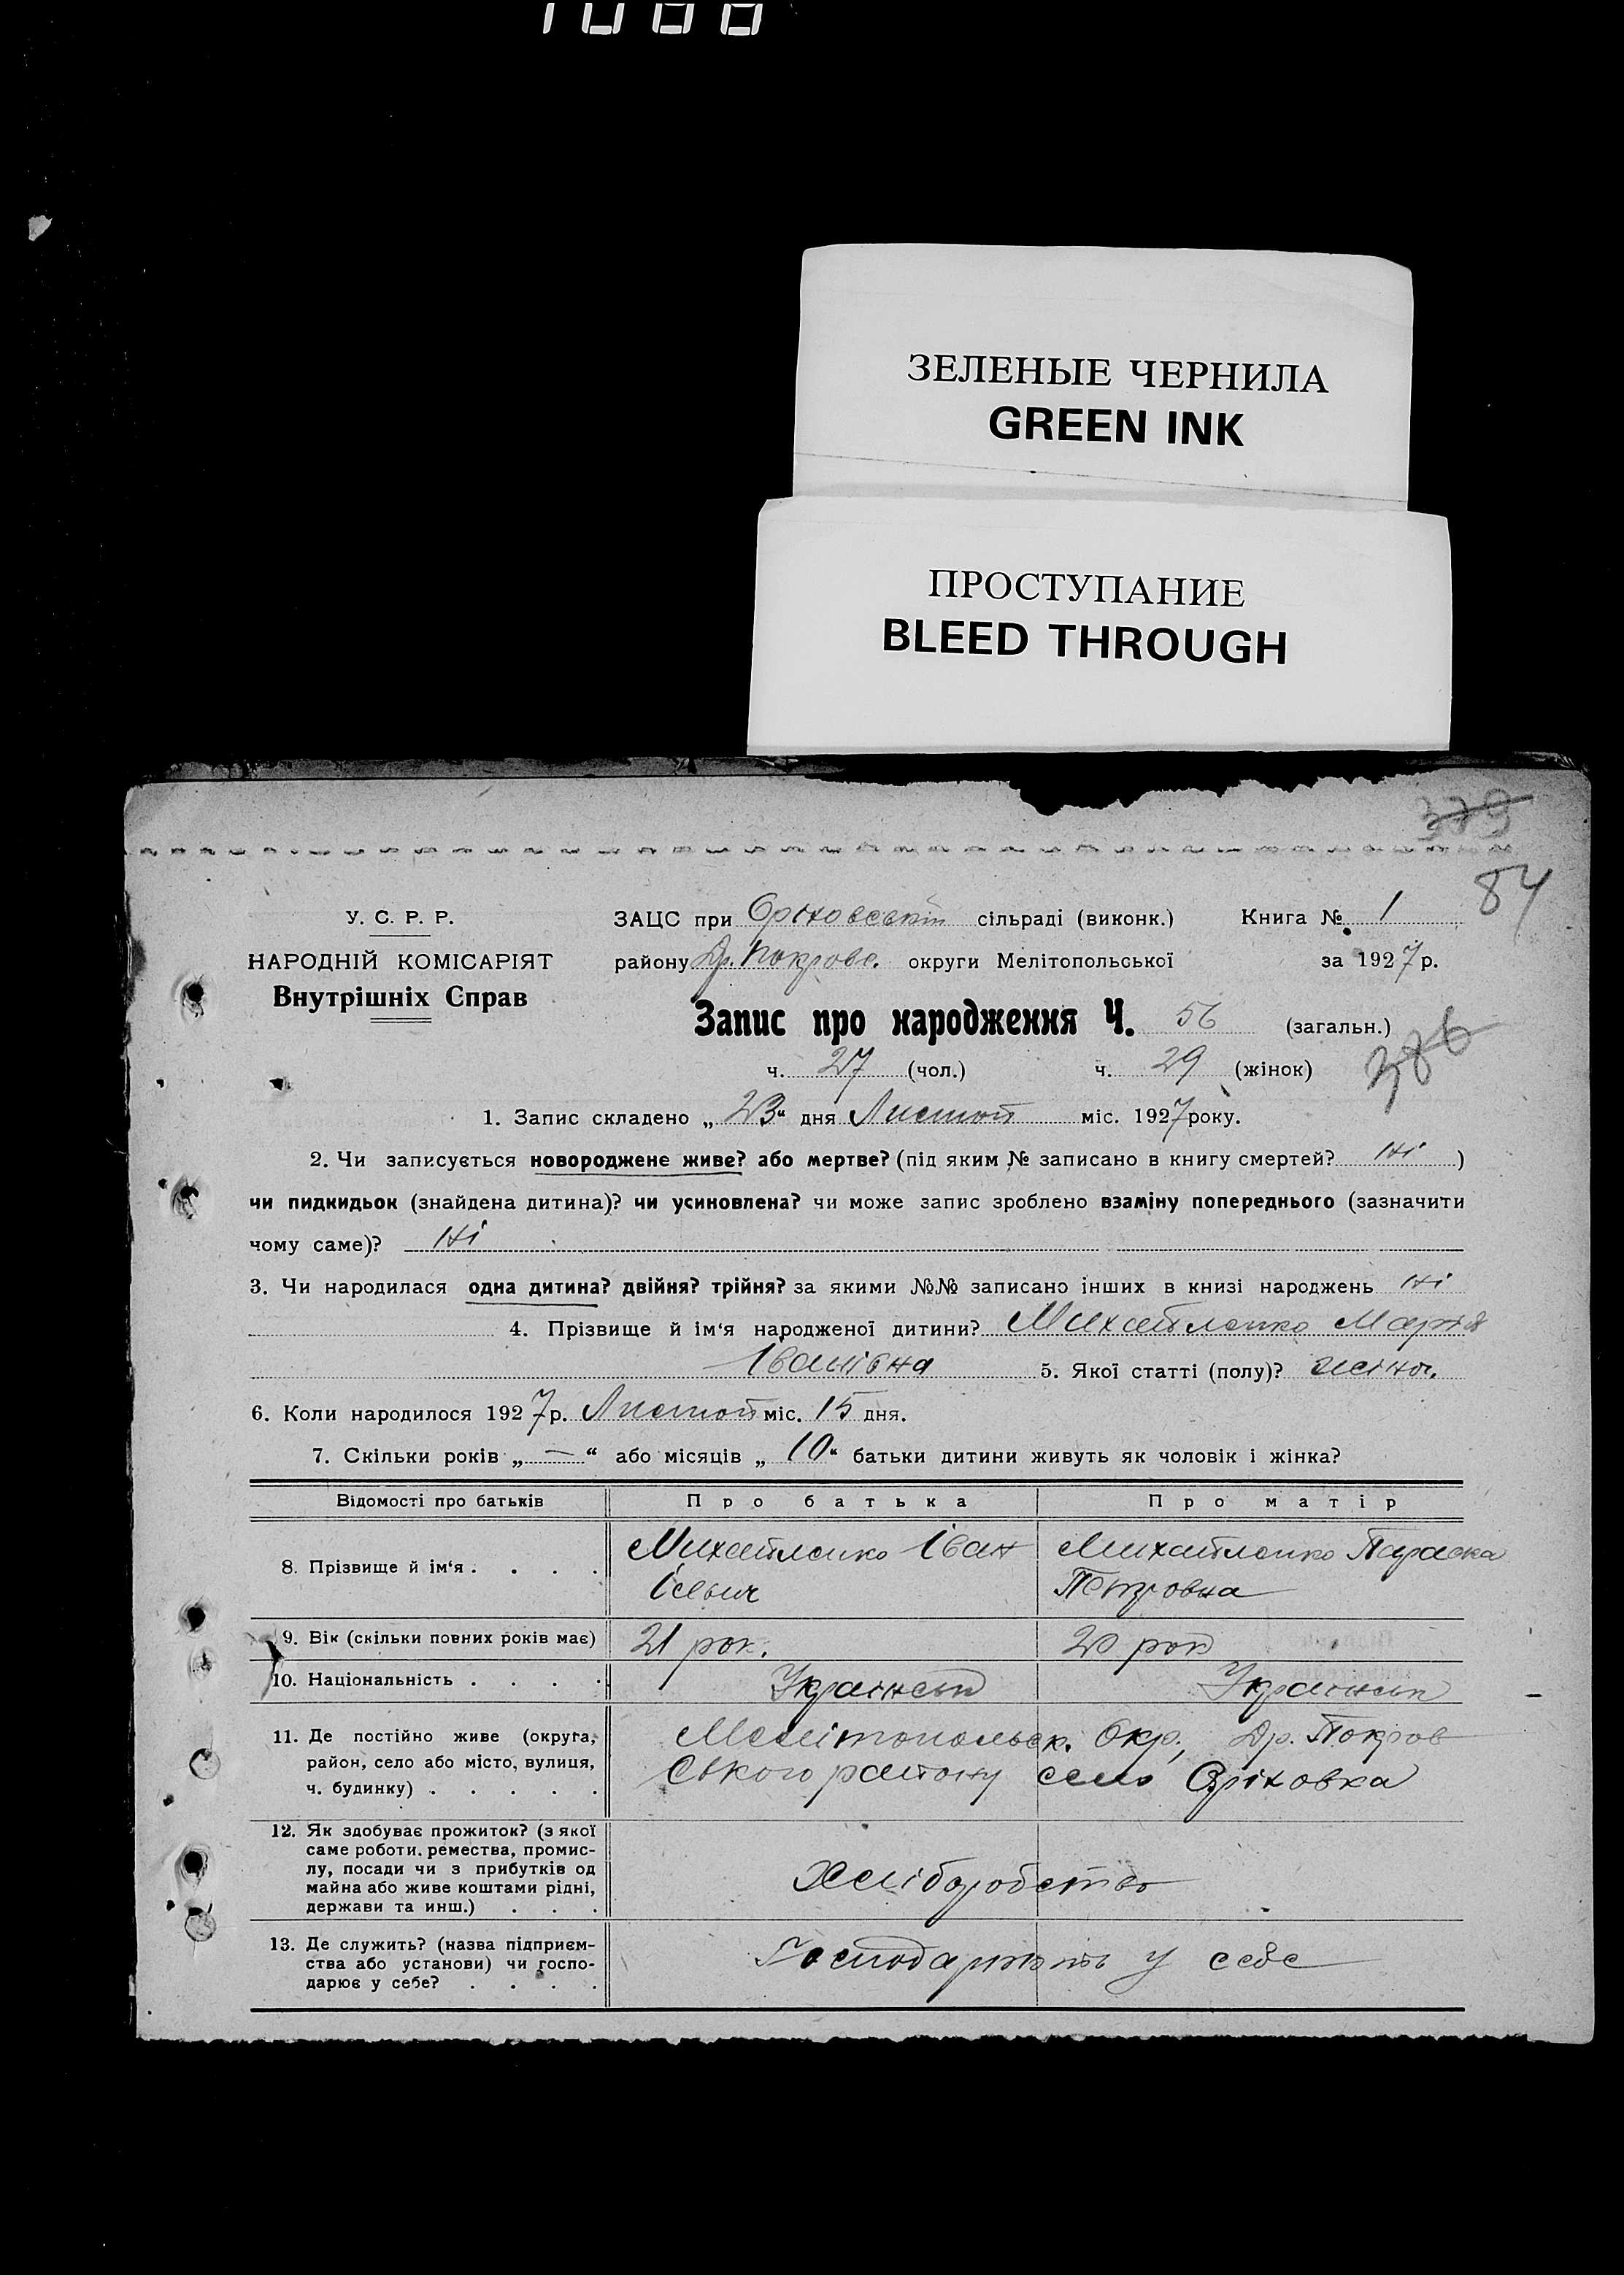 ЗЕЛЕНЫЕ ЧЕРНИЛА
GREEN INK
ПРОСТУПАНИЕ
BLEED THROUGH
379
84
У. С. Р. Р.
НАРОДНІЙ КОМІСАРІЯТ
Внутрішніх Справ
ЗАЦС при Оріховській сільраді (виконк.) Книга № 1
району Др. Покровс. округи Мелітопольської за 1927 р.
Запис про народження Ч. 56 (загальн.)
ч. 27 (чол.) ч. 29 (жінок)
1. Запис складено „23“ дня Листоп міс. 1927 року.
2. Чи записується новороджене живе? або мертве? (під яким № записано в книгу смертей? Ні )
чи пидкидьок (знайдена дитина)? чи усиновлена? чи може запис зроблено взаміну попереднього (зазначити
чому саме)? Ні
3. Чи народилася одна дитина? двійня? трійня? за якими №№ записано інших в книзі народжень Ні
4. Прізвище й ім‘я народженої дитини? Михайленко Марія
Іванівна 5. Якої статті (полу)? жіноч.
6. Коли народилося 1927 р. Листоп міс. 15 дня.
7. Скільки років „—“ або місяців „10“ батьки дитини живуть як чоловік і жінка?
Відомості про батьків Про батька Про матір
8. Прізвище й ім‘я . . . . Михайленко Іван Михайленко Параска
Петровна
9. Вік (скільки повних років має) 21 рок. 20 рок
10. Національність . . . . Українськ Українськ
11. Де постійно живе (округа, район, село або місто, вулиця, ч. будинку) . . . . . Мелітопольськ. Окр., Др. Покров
ського району село Оріховка
12. Як здобуває прожиток? (з якої
саме роботи, ремества, промис-
лу, посади чи з прибутків од
майна або живе коштами рідні,
держави та инш.) . . .
Хліборобство
13. Де служить? (назва підприєм-
ства або установи) чи госпо-
дарює у себе? . . . .
Господарюють у себе